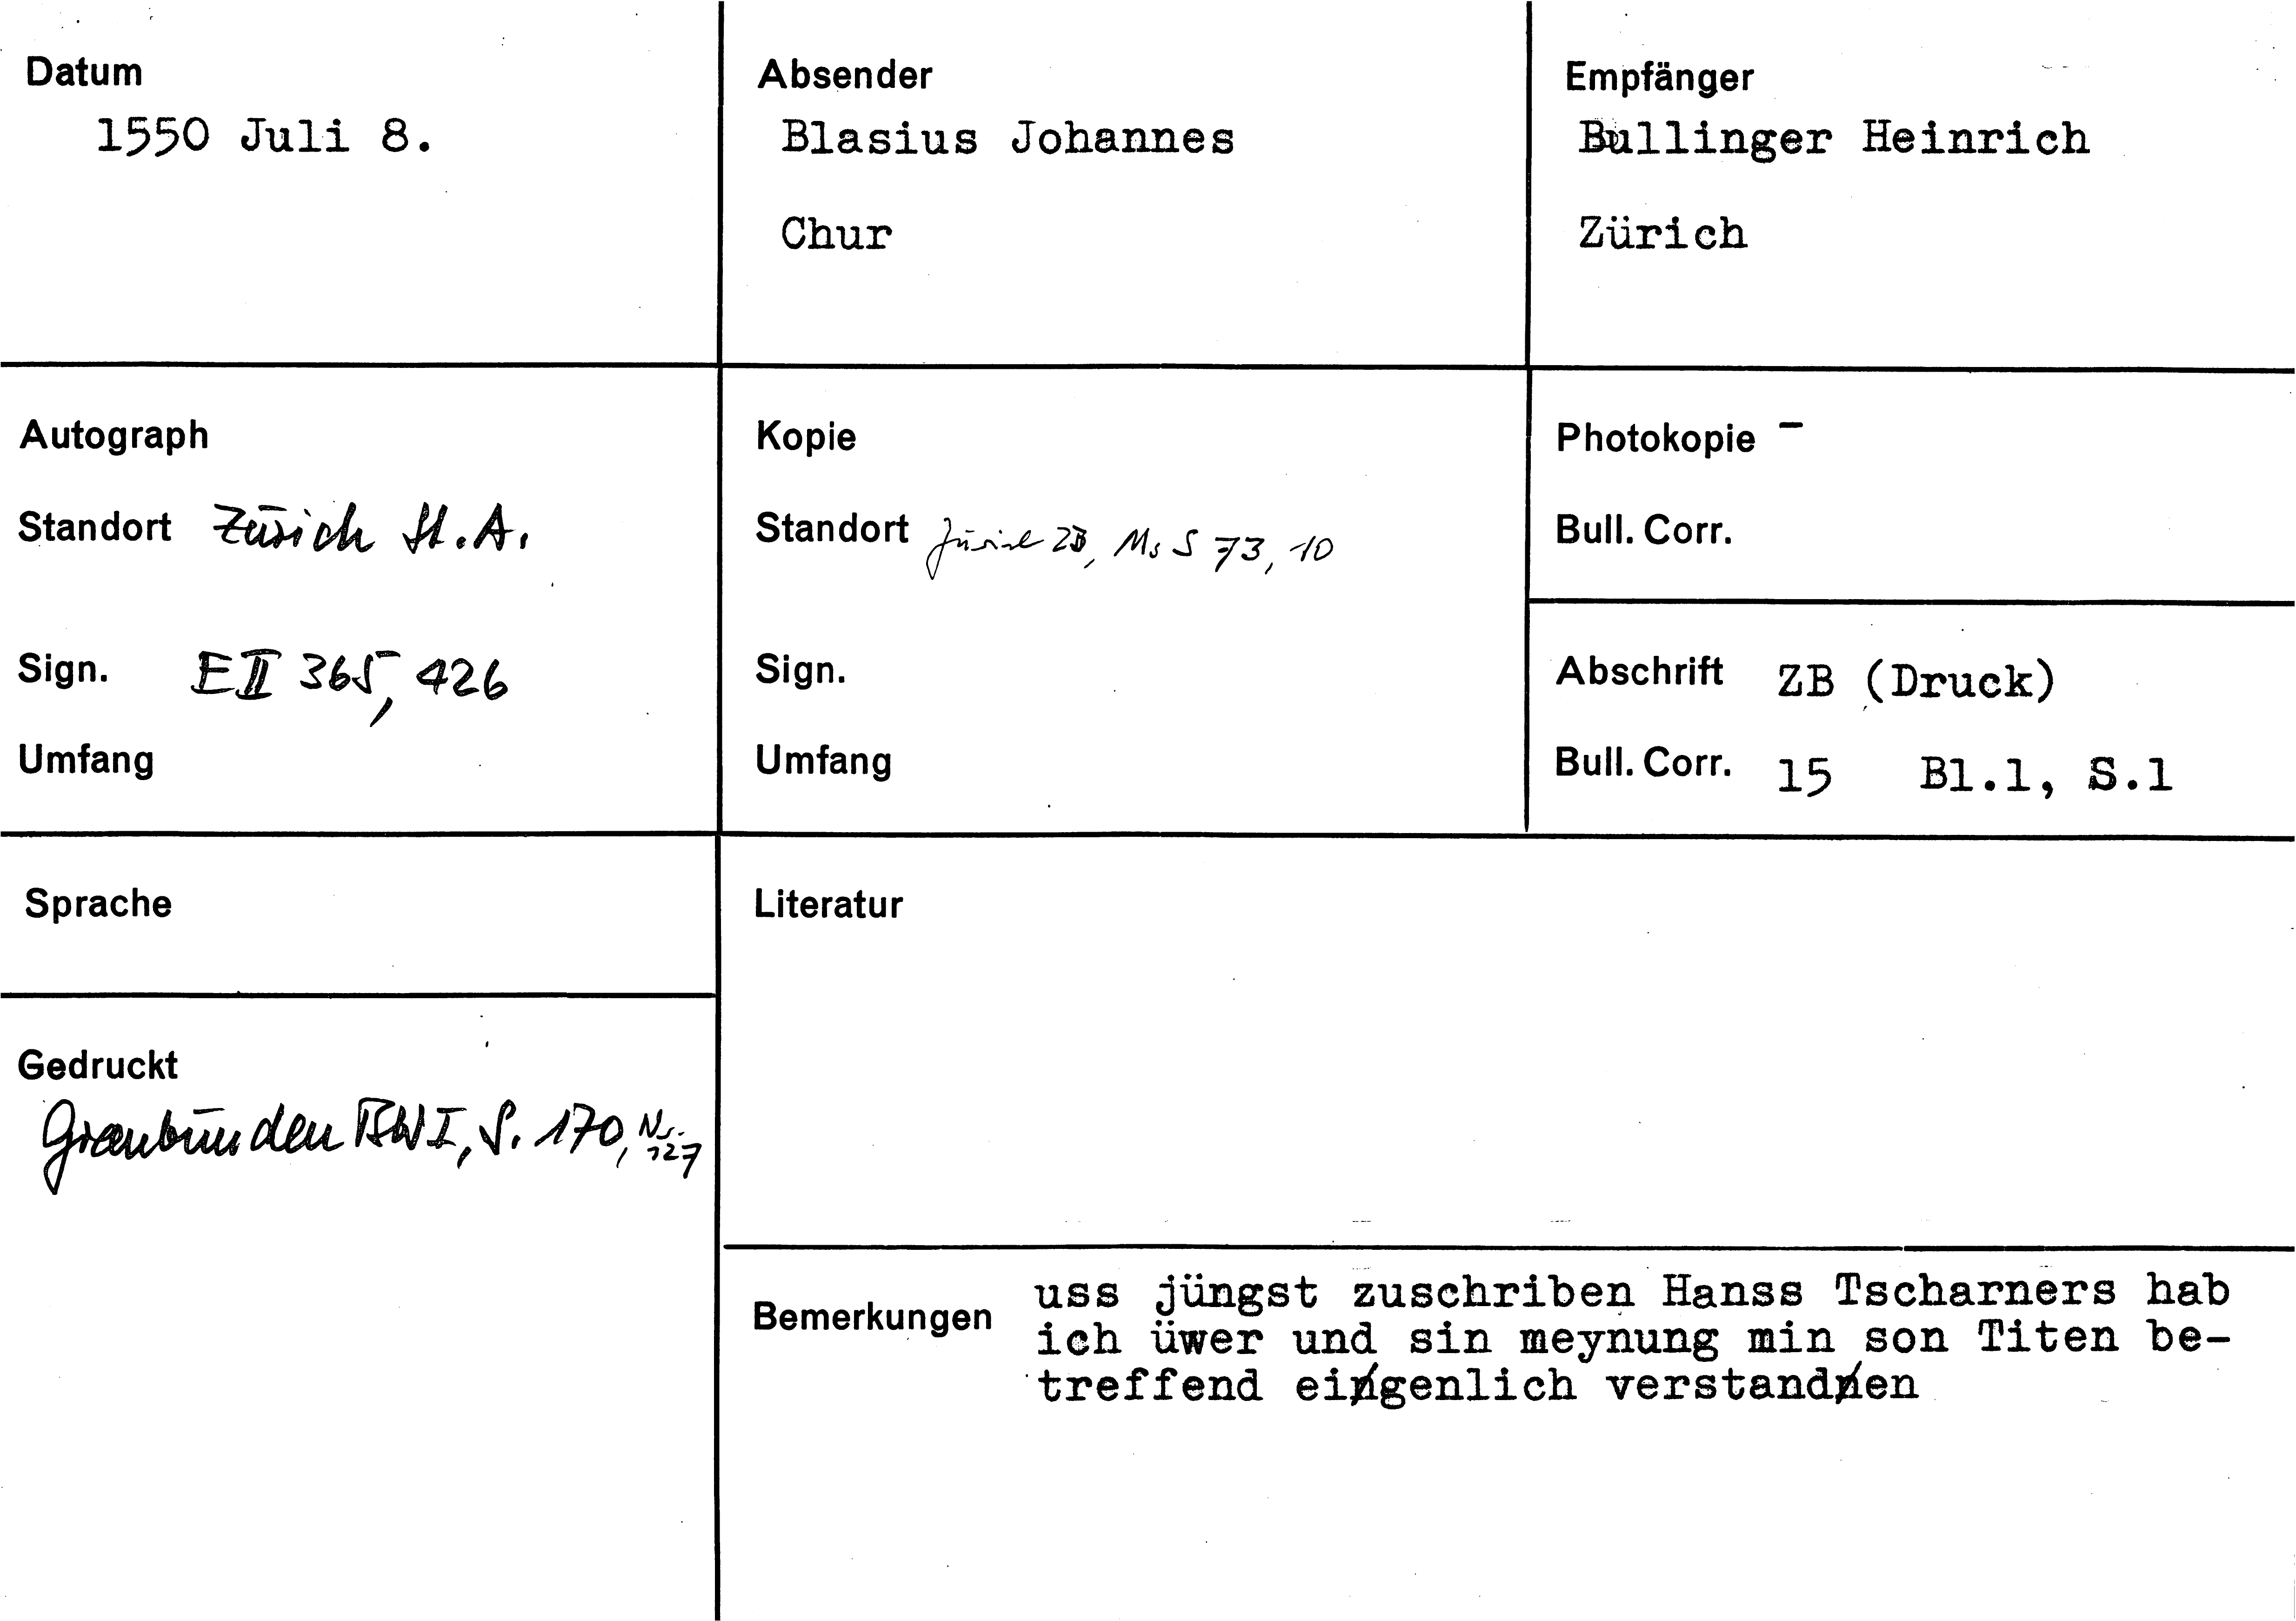 Datum
1550 Juli 8.
Absender
Blasius Johannes
Chur
Empfänger
Bullinger Heinrich
Zürich
Autograph
Standort Zürich St.A.
Sign. EII 365, 426
Umfang
Kopie
Standort Zürich ZB, Ms S 73, 10
Sign.
Umfang
Photokopie -
Bull. Corr.
Abschrift ZB (Druck)
Bull. Corr. 15 Bl.1, S.1
Sprache
Gedruckt
Graubünden BW I, S. 170, Nr. 127
Literatur
Bemerkungen
uss jüngst zuschriben Hanss Tscharners hab
ich üwer und sin meynung min son Titen be-
treffend eigenlich verstanden